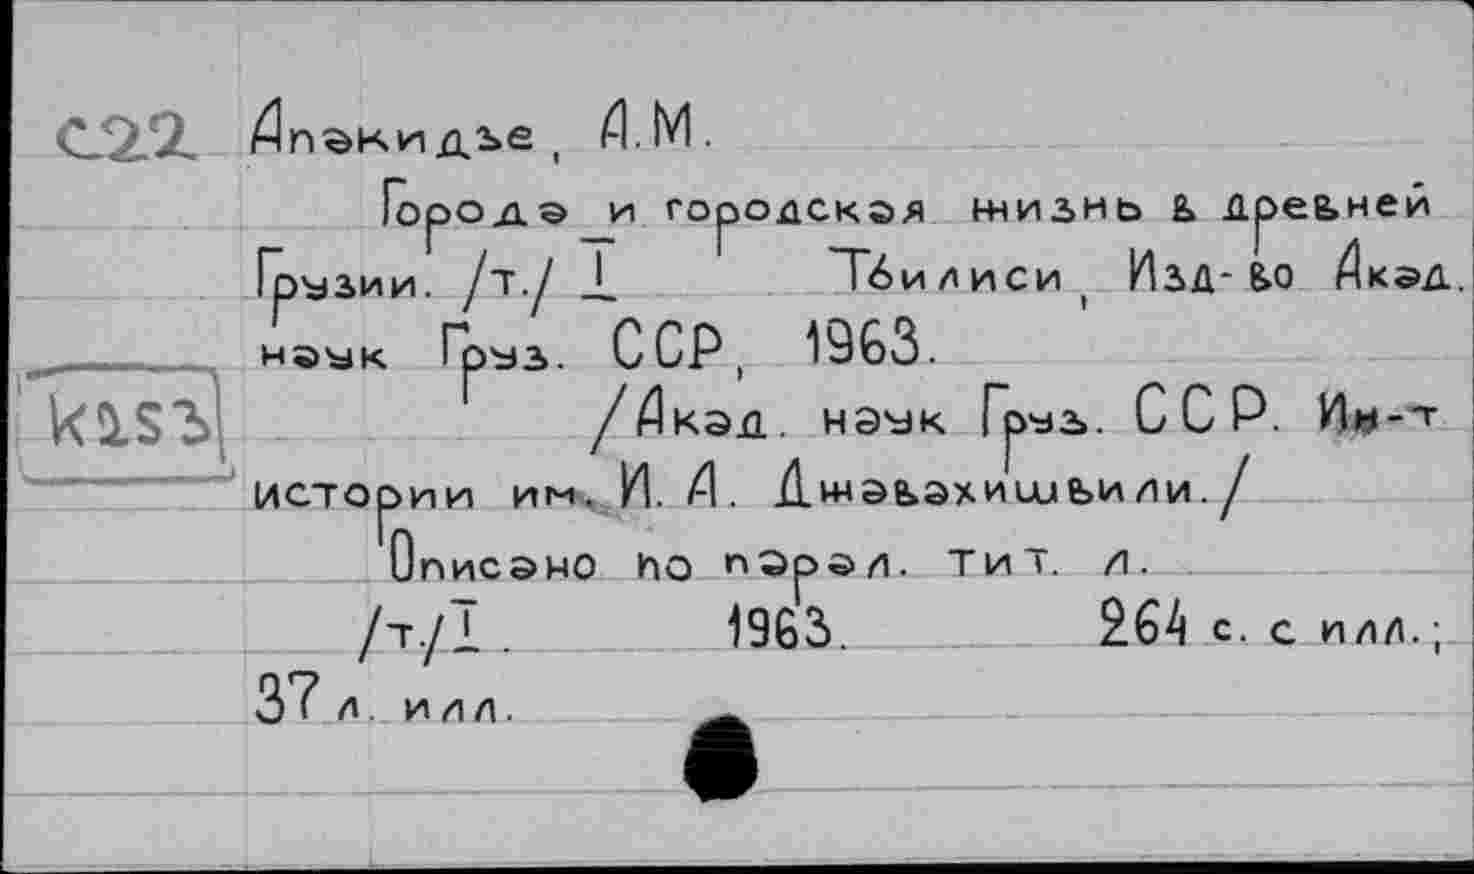 C22 Апакидзе, А.М.
Города и городская жизнь в древней
Грузии. /т./ I Тбилиси, Изд-во Акад.
наук Груз. ССР, 1963.
/Акад. наук Груз. ССР. Ин-т
истории им. И. А. Джавахишвили./
Описано по парал. тит. л.
/т./I. 1963. 264 с. с илл.;
37 л. илл.